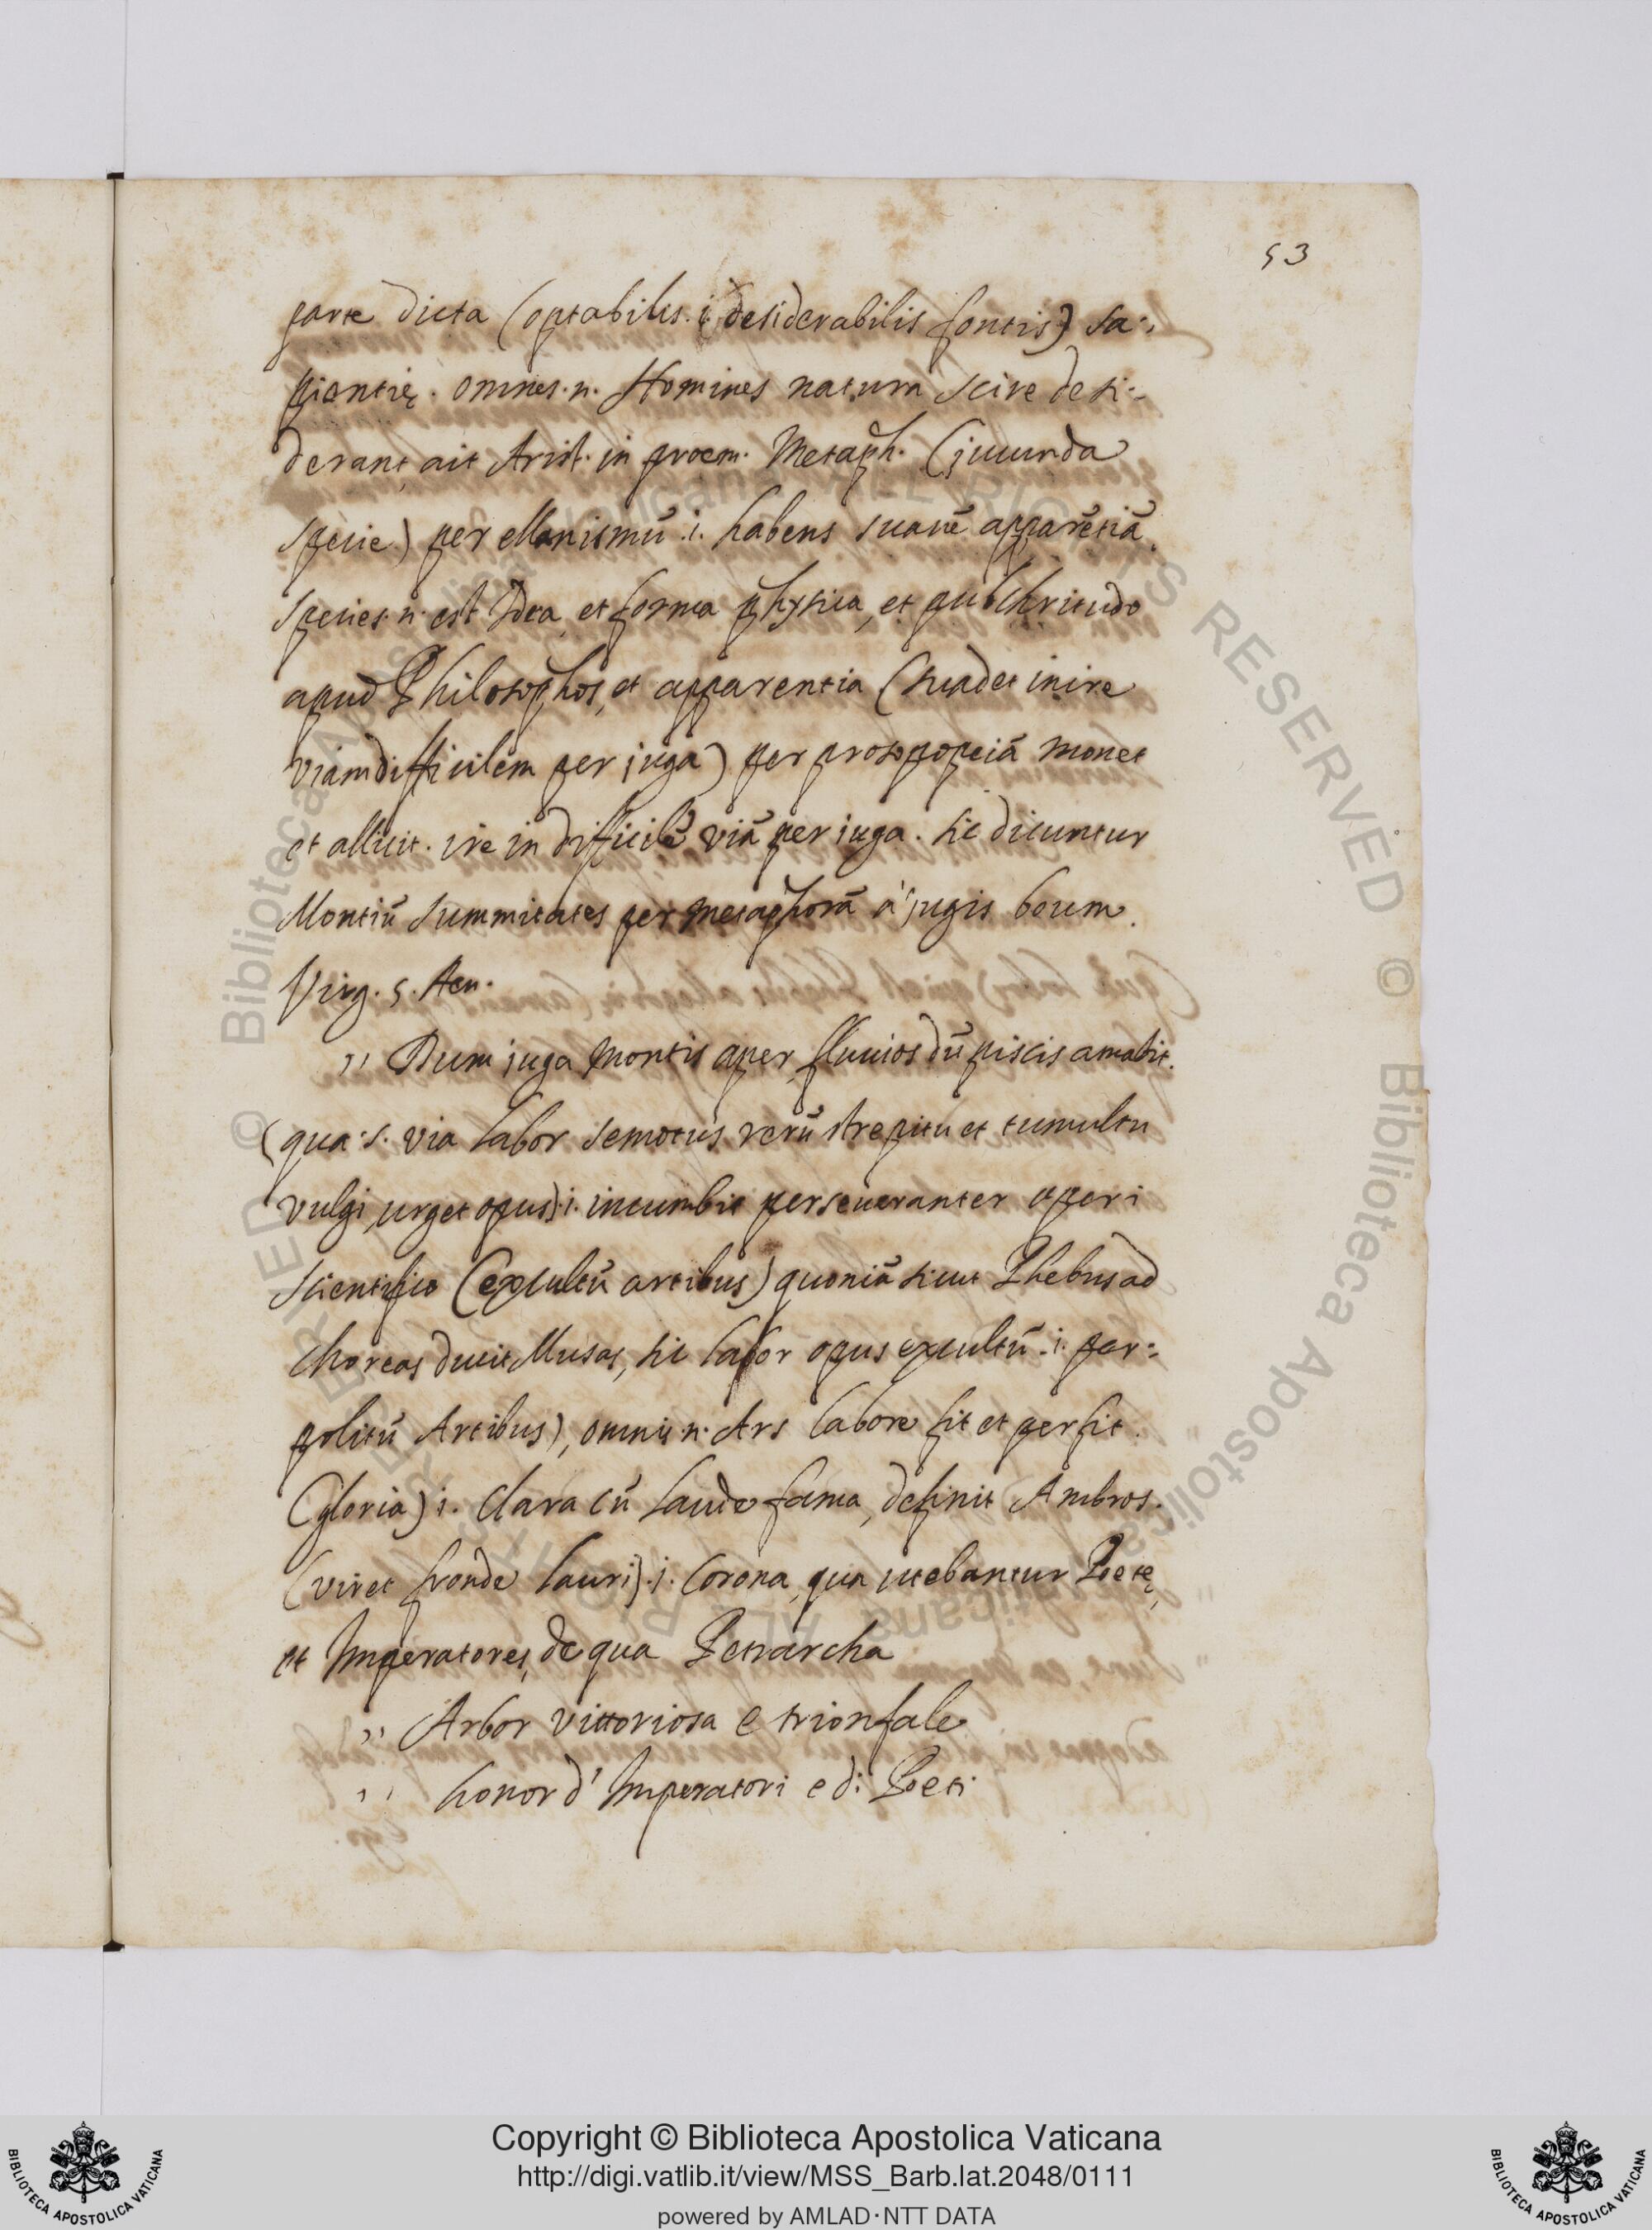 53
parte dicta (optabilis .i. desiderabilis fontis) sa-
pientię. omnes .n. Homines natura scire desi-
derant, ait Arist. in proem. Metaph. (jucunda
specie) per ellenismũ .i. habens suauẽ apparẽtiã.
species .n. est Idea, et forma physica, et pulchritudo
apud Philosophos, et apparentia (suadet inire
viam difficilem per iuga) per prosopopeiã monet
et allicit. ire in difficilẽ viã per iuga. sic dicuntur
Montiũ summitates per metaphorã à jugis boum.
Virg. 5. Aen.
,, Dum iuga montis aper, fluuios dũ piscis amabit.
(qua .s. via labor semotus rerũ strepitu et tumultu
vulgi, urget opus) .i. incumbit perseueranter operi
scientifico (excultũ artibus) quoniã sicut Phebus ad
choreas ducit Musas, sic labor opus excultũ .i. per-
politũ Artibus), omnis .n. Ars labore fit et perfit.
(gloria) .i. Clara cũ laude fama, definit Ambros.
(viret fronde lauri) .i. Corona, qua utebantur Poetę,
et Imperatores, de qua Petrarcha
,, Arbor vittoriosa e trionfale
,, honor d' Imperatori e di Poeti
Copyright © Biblioteca Apostolica Vaticana
http://digi.vatlib.it/view/MSS_Barb.lat.2048/0111
powered by AMLAD·NTT DATA
BIBLIOTECA APOSTOLICA VATICANA
BIBLIOTECA APOSTOLICA VATICANA
© Biblioteca Apostolica Vaticana ALL RIGHTS RESERVED
© Biblioteca Apostolica Vaticana ALL RIGHTS RESERVED